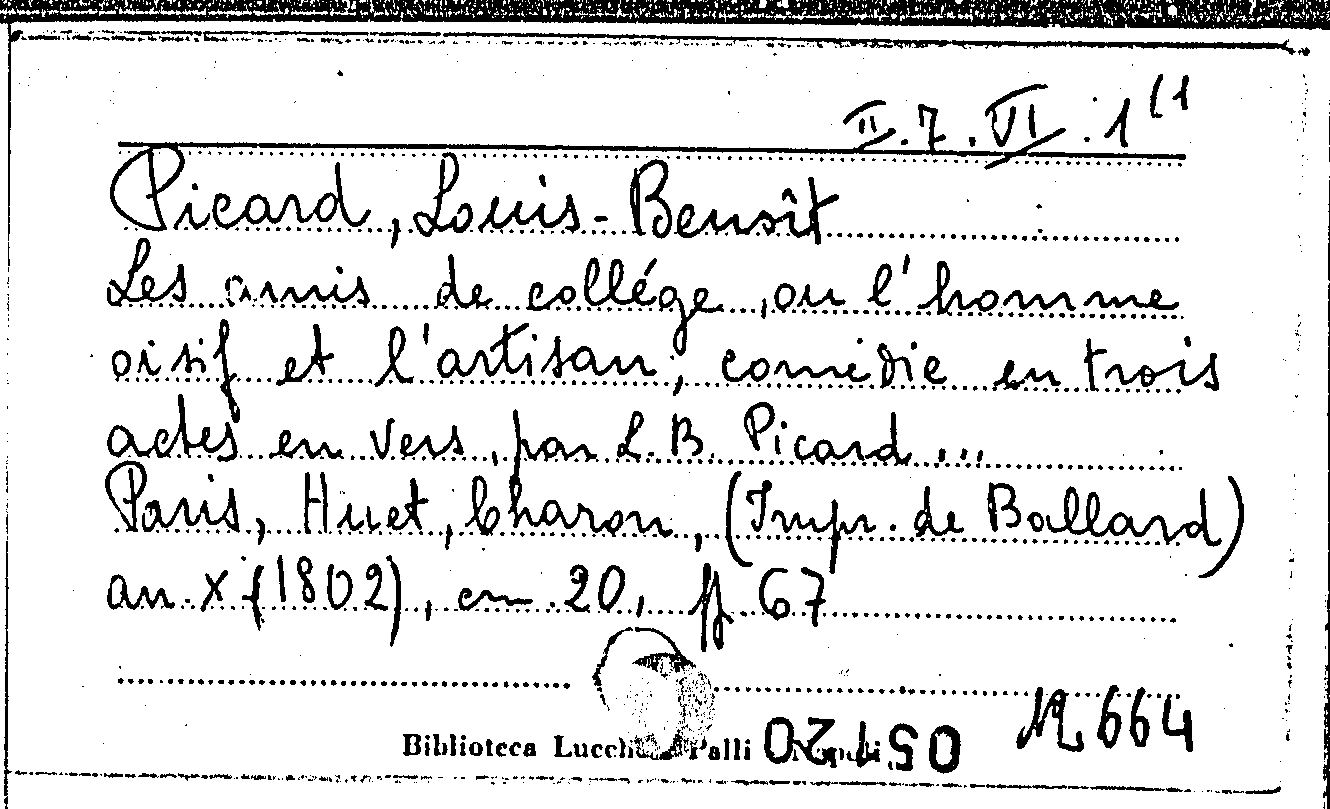 II.7.VI.1(1
Picard, Louis-Benoît
Les amis de collége, ou l'homme
oisif et l'artisan, comédie en trois
actes en vers, par L.B. Picard...
Paris, Huet, Charon, (Impr. de Ballard)
an X (1802), cm 20, pp 67
Biblioteca Lucchesi Palli
12664